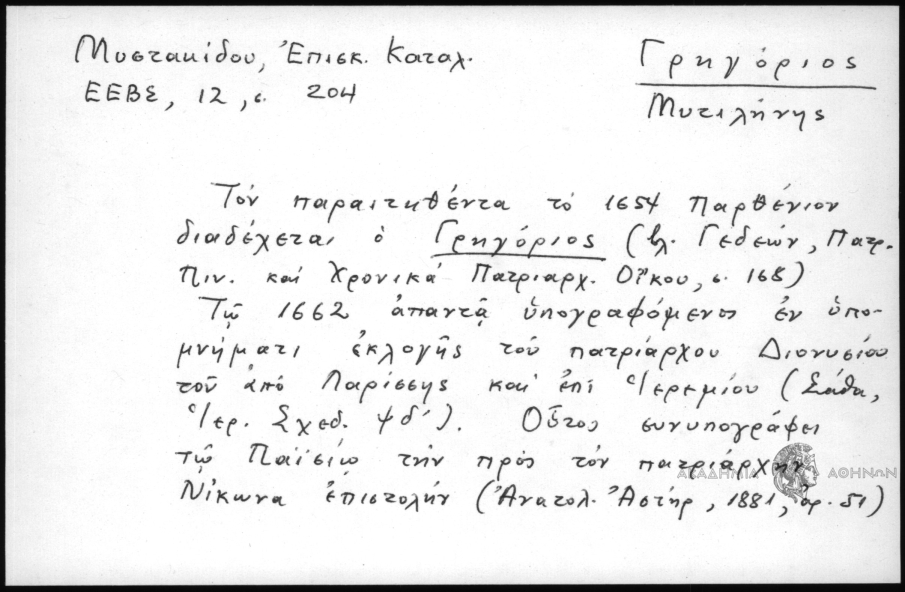 Μυστακίδου, Ἐπισκ. Καταλ.
ΕΕΒΣ, 12, σ. 204
Γρηγόριος
Μυτιλήνης
Τόν παραιτηθέντα τὸ 1654 Παρθένιον
διαδέχεται ὁ Γρηγόριος (βλ. Γεδεών, Πατρ.
Πιν. καί Χρονικά Πατριαρχ. Οἴκου, σ. 168)
Τῷ 1662 ἀπαντᾷ ὑπογραφόμενος ἐν ὑπο-
μνήματι ἐκλογῆς τοῦ πατριάρχου Διονυσίου
τοῦ ἀπό Λαρίσσης καί ἐπί Ἱερεμίου (Σάθα,
Ἱερ. Σχεδ. ψδ´). Οὗτος συνυπογράφει
τῷ Παϊσίῳ τήν πρός τόν πατριάρχην
Νίκωνα ἐπιστολήν (Ἀνατολ. Ἀστήρ, 1881, ἀρ. 51)
ΑΚΑΔΗΜΙΑ ΑΘΗΝΩΝ